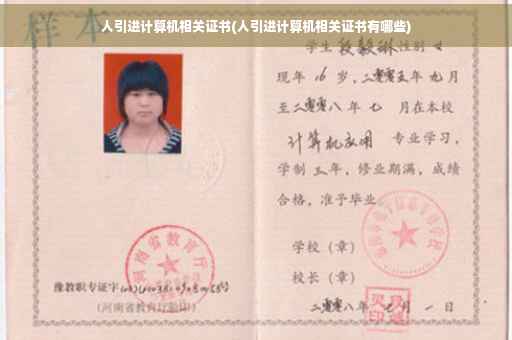 样本
人引进计算机相关证书(人引进计算机相关证书有哪些)
学生 段毅琳 性别 女
现年 16 岁，二零零五年 九月
至二零零八年 七 月在本校
计算机应用 专业学习，
学制 三年，修业期满，成绩
合格，准予毕业
学校（章）
校长（章）
二零零八年 七月 一日
河南省教育厅
豫教职专证字
(河南省教育厅验印)